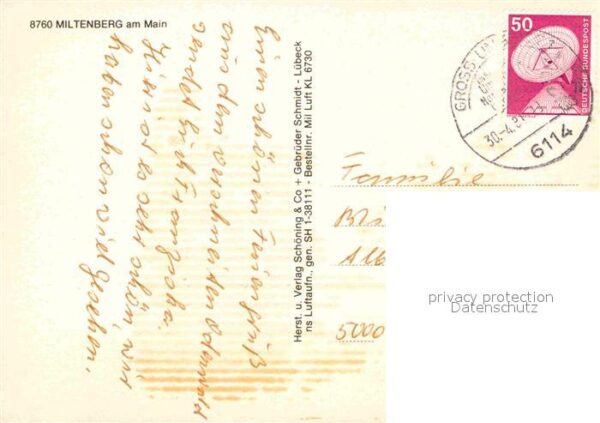 8760 MILTENBERG am Main
Einen schönen Feriengruß
aus dem verschneiten Odenwald
sendet Euch
Hier ist es sehr schön, wir
haben schon viel gesehen.
Herst. u. Verlag Schöning & Co + Gebrüder Schmidt - Lübeck
ns Luftaufn., gen. SH 1-38111 - Bestellnr. Mil Luft KL 6730
50
DEUTSCHE BUNDESPOST
GROSS
30.-4.81
6114
Familie
5000
privacy protection
Datenschutz